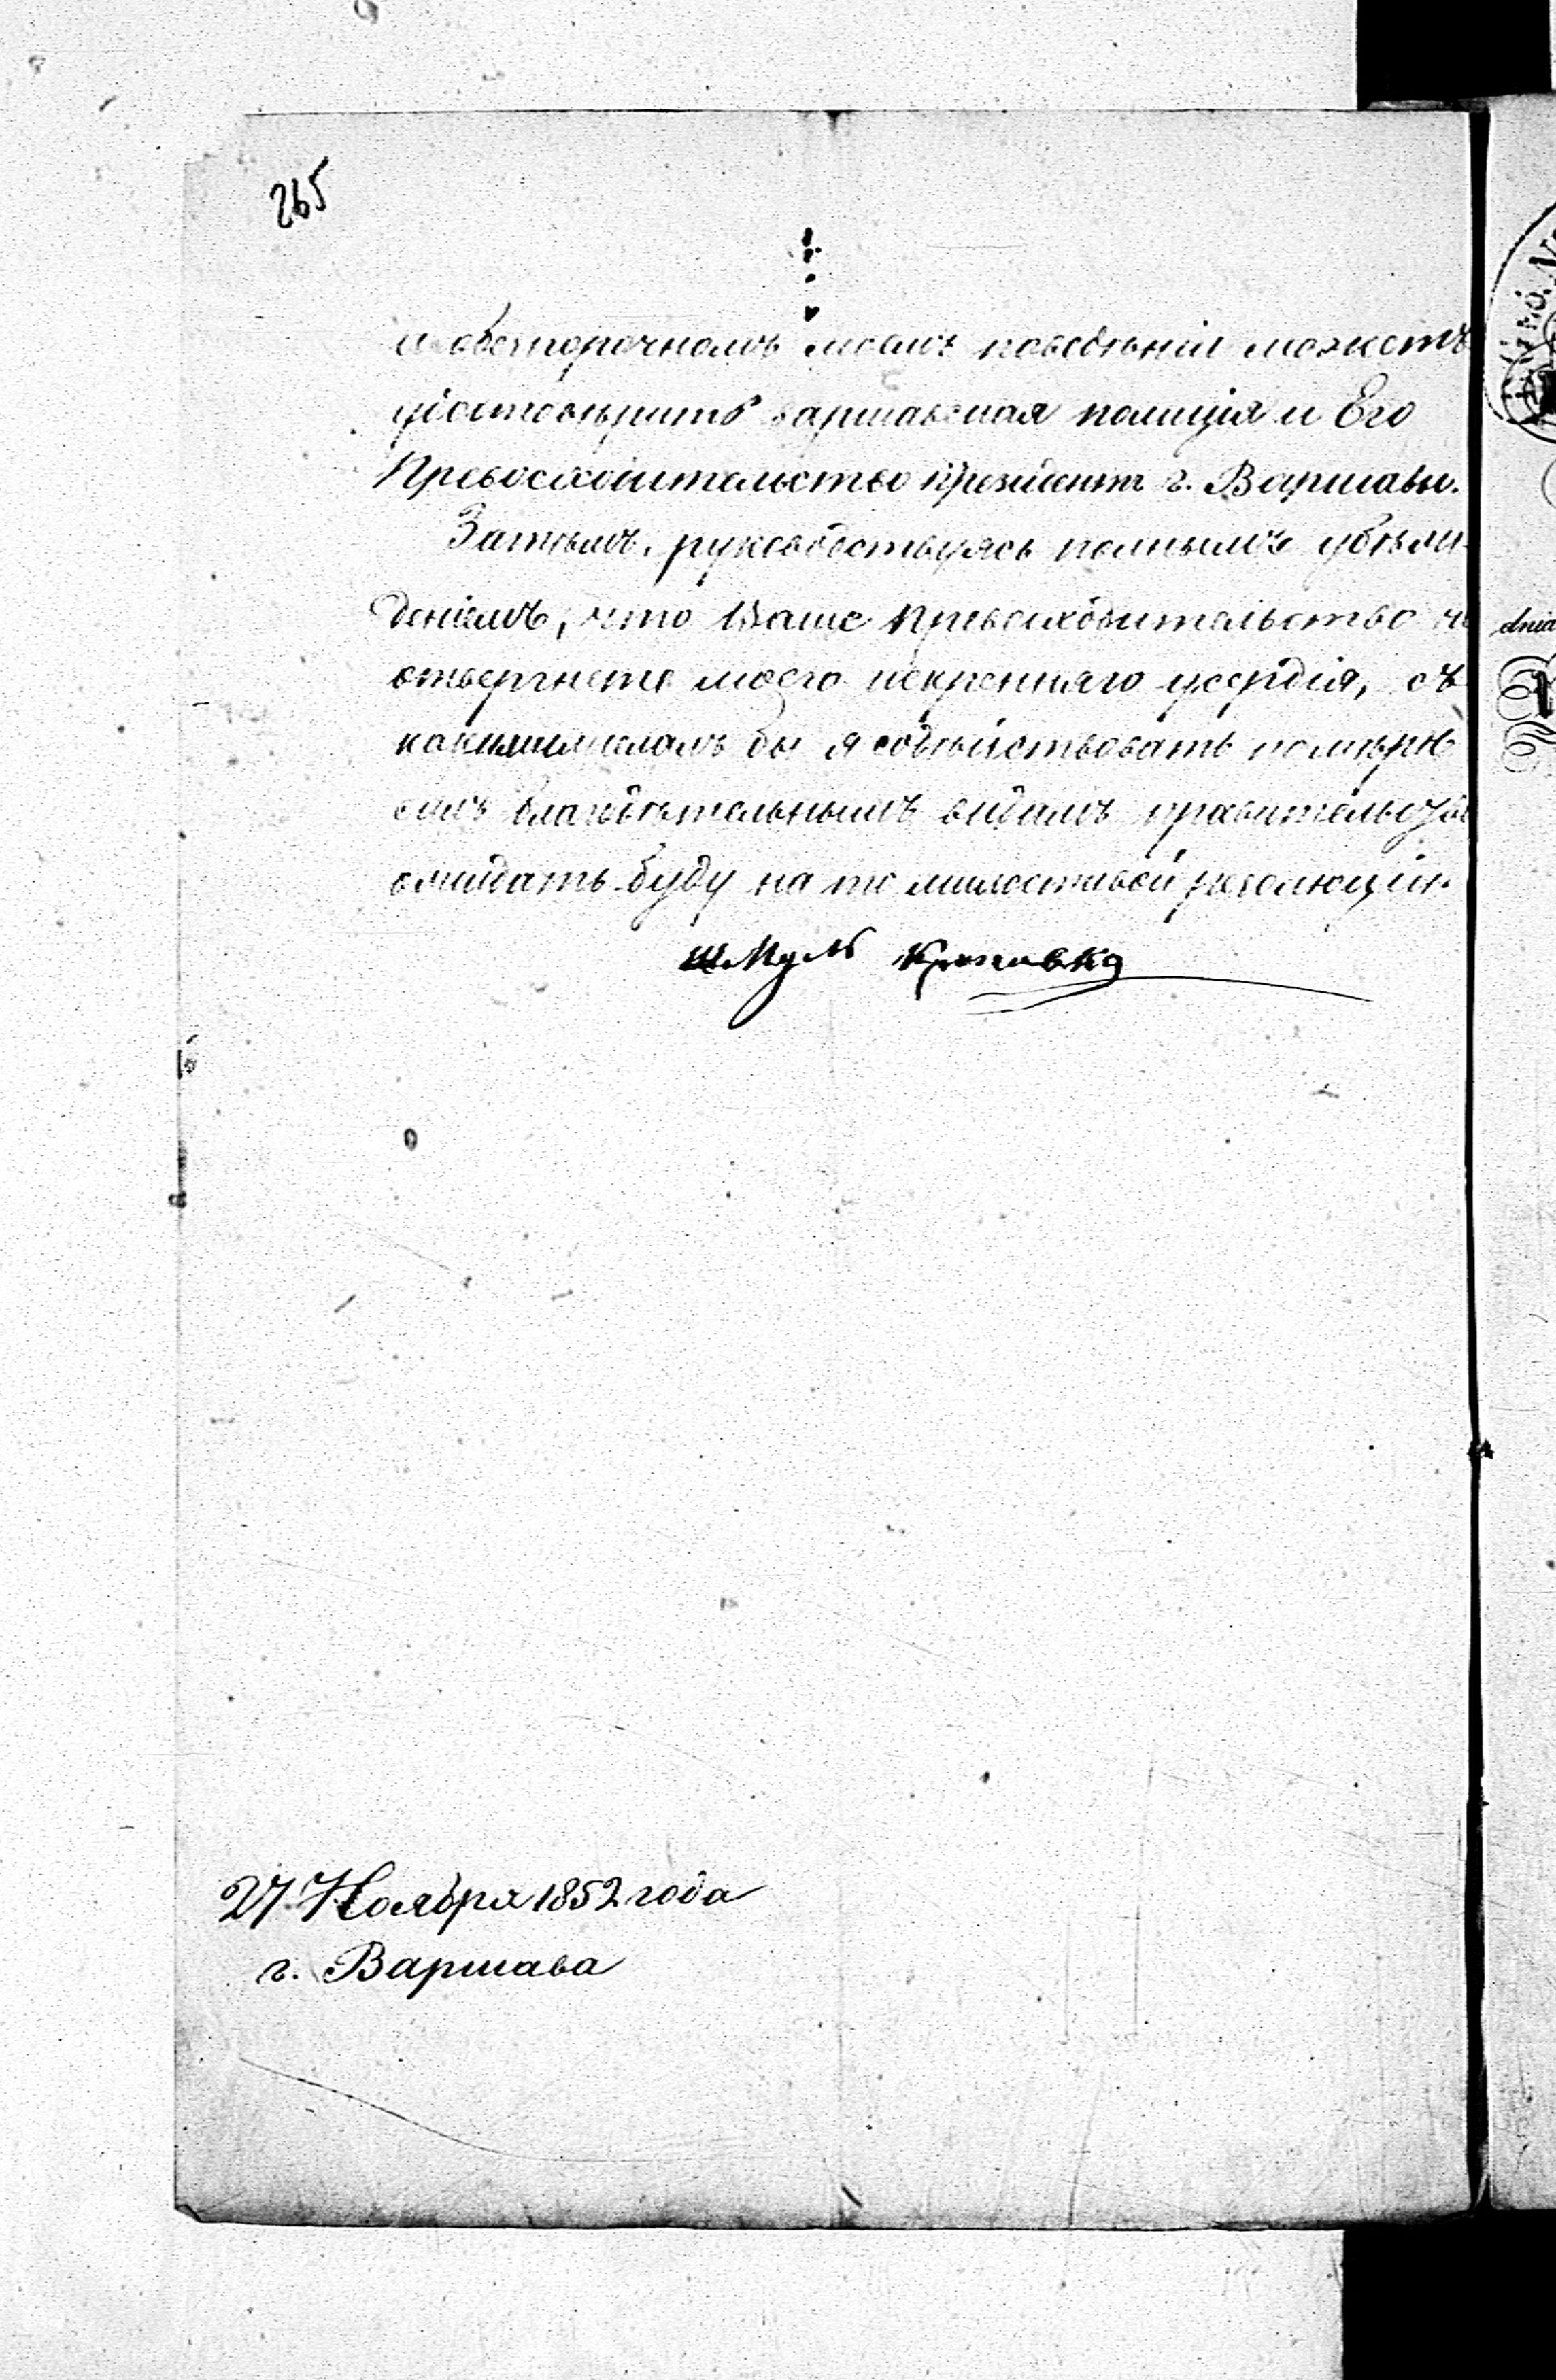 265
и безпорочномъ моемъ поведѣніи можетъ
удостовѣрить варшавская полиція и Его
Превосходительство Президентъ г. Варшавы.
Затѣмъ, руководствуясь полнымъ убѣж-
деніемъ, что Ваше Превосходительство не
отвергнете моего искренняго усердія, съ
какимъ желалъ бы я содѣйствовать по мѣрѣ
силъ благодѣтельнымъ видамъ правительства
ожидать буду на то милостивой резолюціи.
Шмуль
27 Ноября 1852 года
г. Варшава
dnia